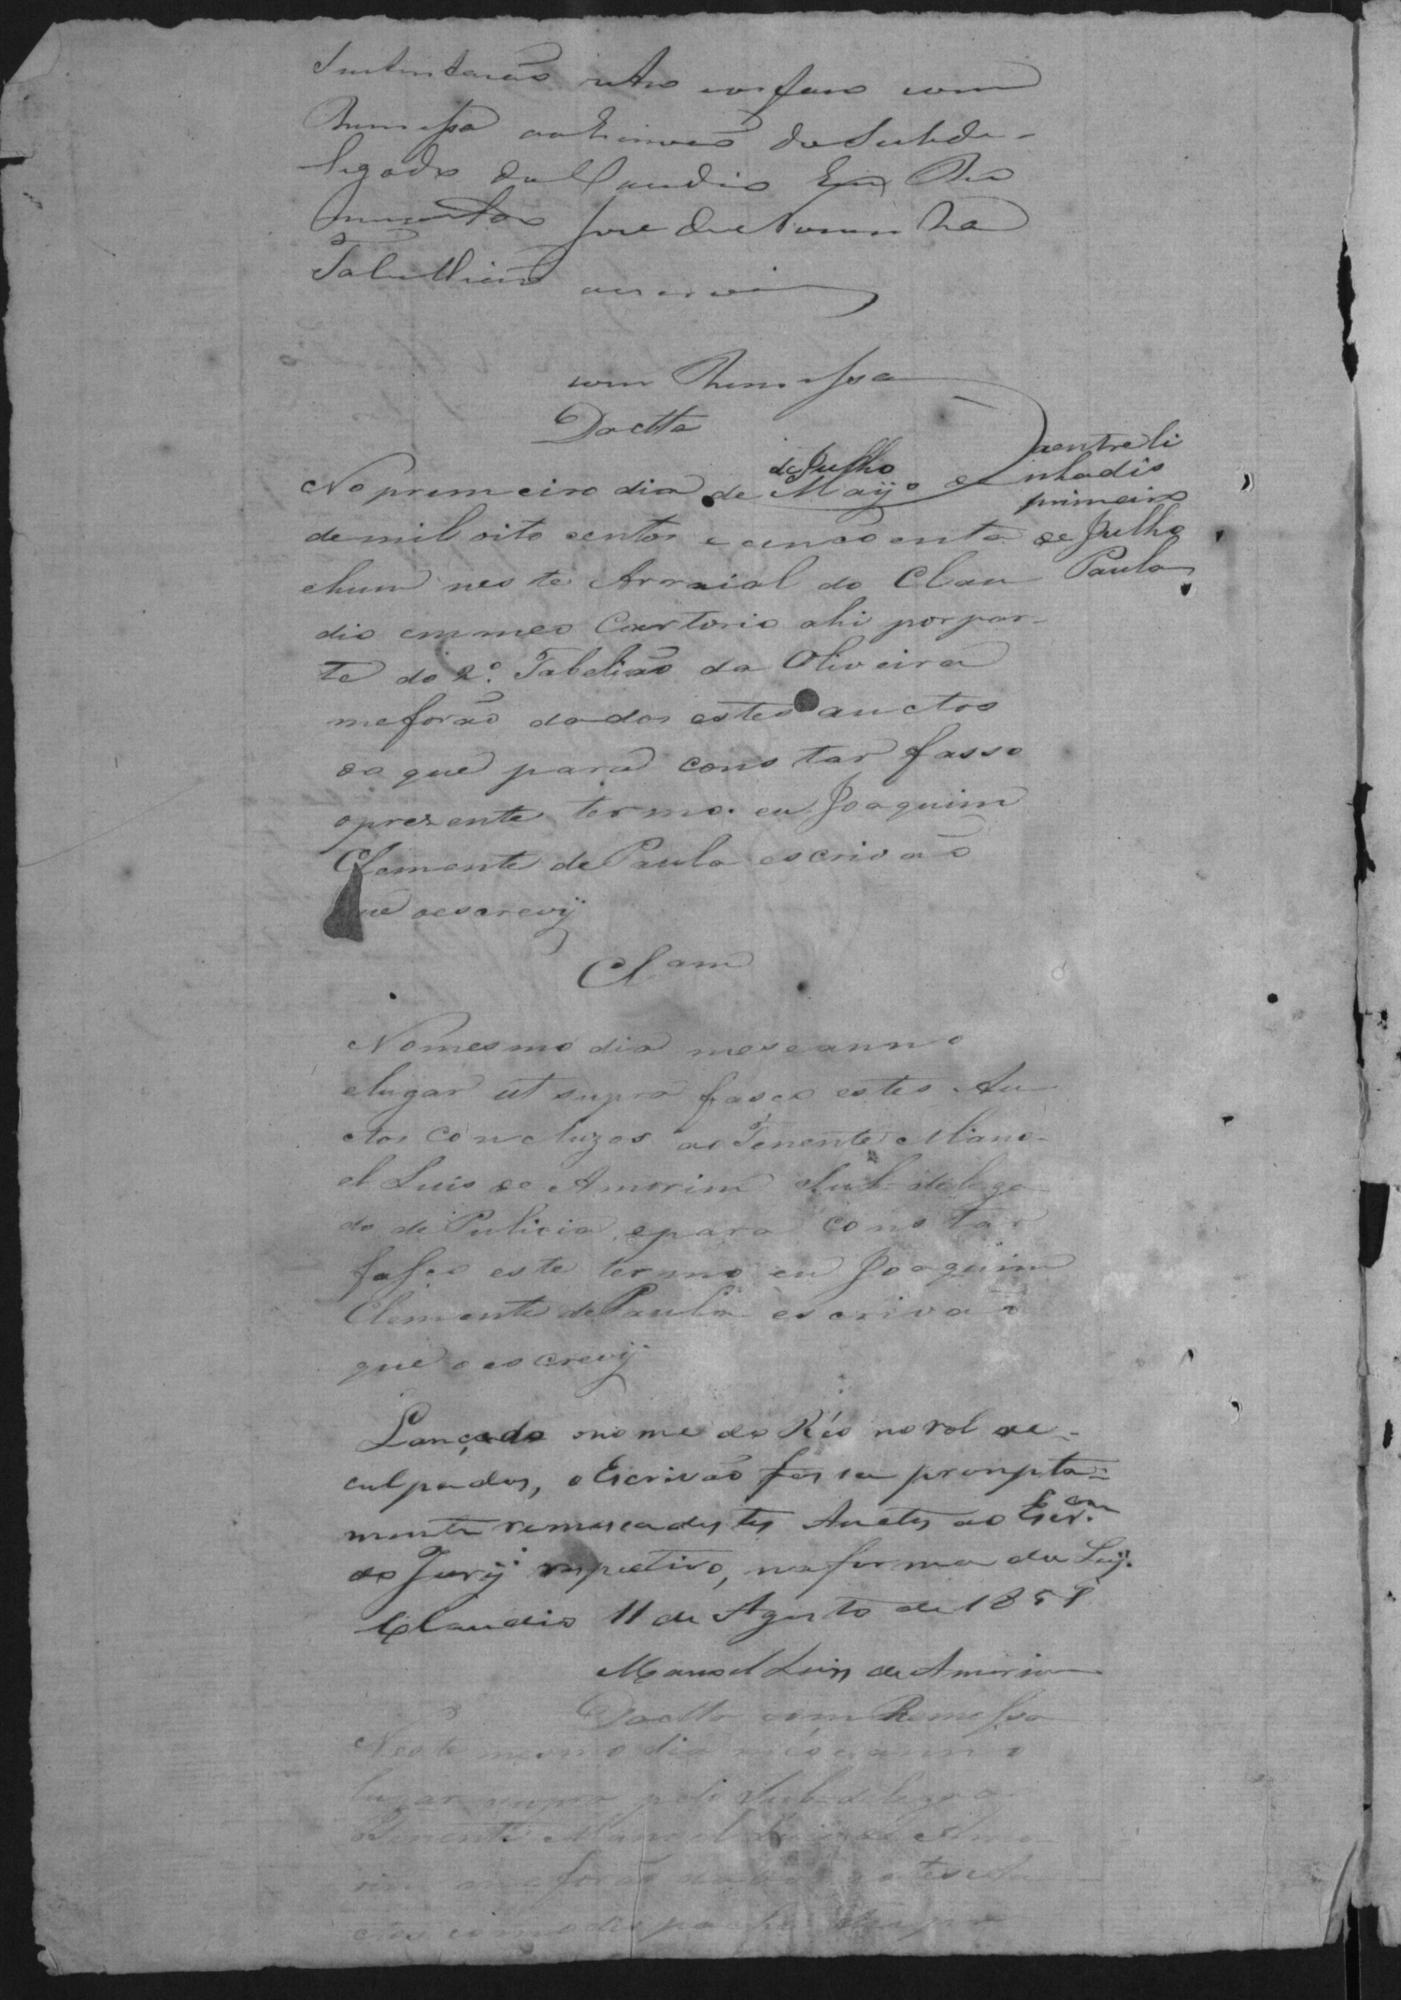 Sustentação retro os faço com
Remessa ao Escrivão do Subde-
legado do Claudio Eu
José de Noronha
Tabellião escrevi
com Remessa
Dactta
No primeiro dia de Mayo de
de Julho
aentreli
nhadis
primeiro
de Julho
Paula
de mil oito centos e cincoenta
ehum neste Arraial do Clau
dio em meo Cartorio ahi por par-
te do 2º. Tabelião da Oliveira
me forão dados estes auctos
do que para constar fasso
oprezente termo. eu Joaquim
Clemente de Paula escrivão
que oescrevÿ
Clam
No mesmo dia mes eanno
elugar ut supra fasço estes Au
ctos concluzos ao Tenente Mano-
el Luis de Amorim Sub delega
do de Pulicia, epara constar
fasço este termo eu Joaquim
Clemente de Paula escrivão
que oescrevÿ
Lançado onome do Réo no rol de-
culpados, oEscrivão faça prompta-
mente remessa destes Auctos ao Escr.am
do Jurÿ respectivo, na forma da Leÿ.
Claudio 11 de Agosto de 1851
Manoel Luis de Amorim
Dactta com Remessa
Neste mesmo dia mes eanno
lugar supra pelo Subdelegado
Tenente Manoel Luis de Amo
rim me forão dados estes Au
ctos com o despacho supra